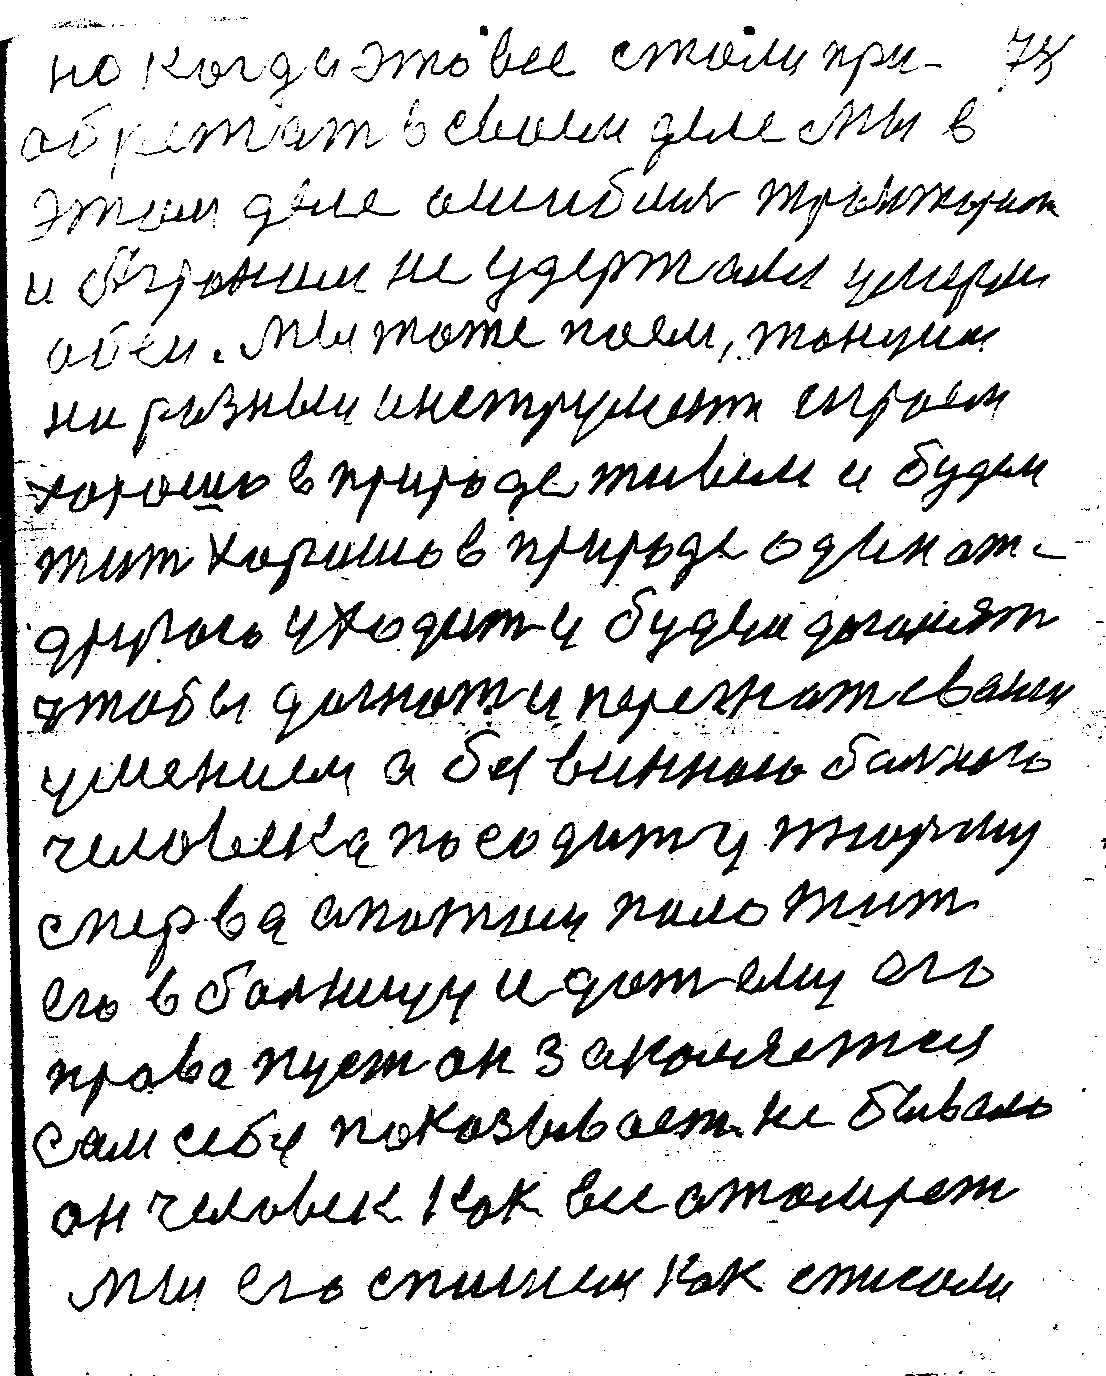 но когда это все стали при- 78
обретат в своем деле Мы в
этом деле ошиблис
и не удержали умерли
обеи. Мы тоже поем, танцуим
на разным инструмент сыграем
хорошо в природе живем и будем
жит хорошо в природе одинат-
другого уходит и будем догонят
чтобы догнат и перегнат сваим
умением а без винного болного
человека посодит у тюрму
сперва апотом положит
его в болницу и дат ему его
права пуст он закаляется
сам себя показывает. Не бывало
он человек как все отомрет
Мы его спишем как списали